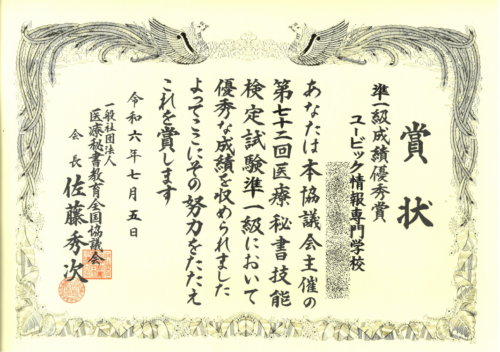 賞状
準一級成績優秀賞
ユービック情報専門学校
あなたは本協議会主催の
第七十二回医療秘書技能
検定試験準一級において
優秀な成績を収められました
よってここにその努力をたたえ
これを賞します
令和六年七月五日
一般社団法人
医療秘書教育全国協議会
会長 佐藤秀次